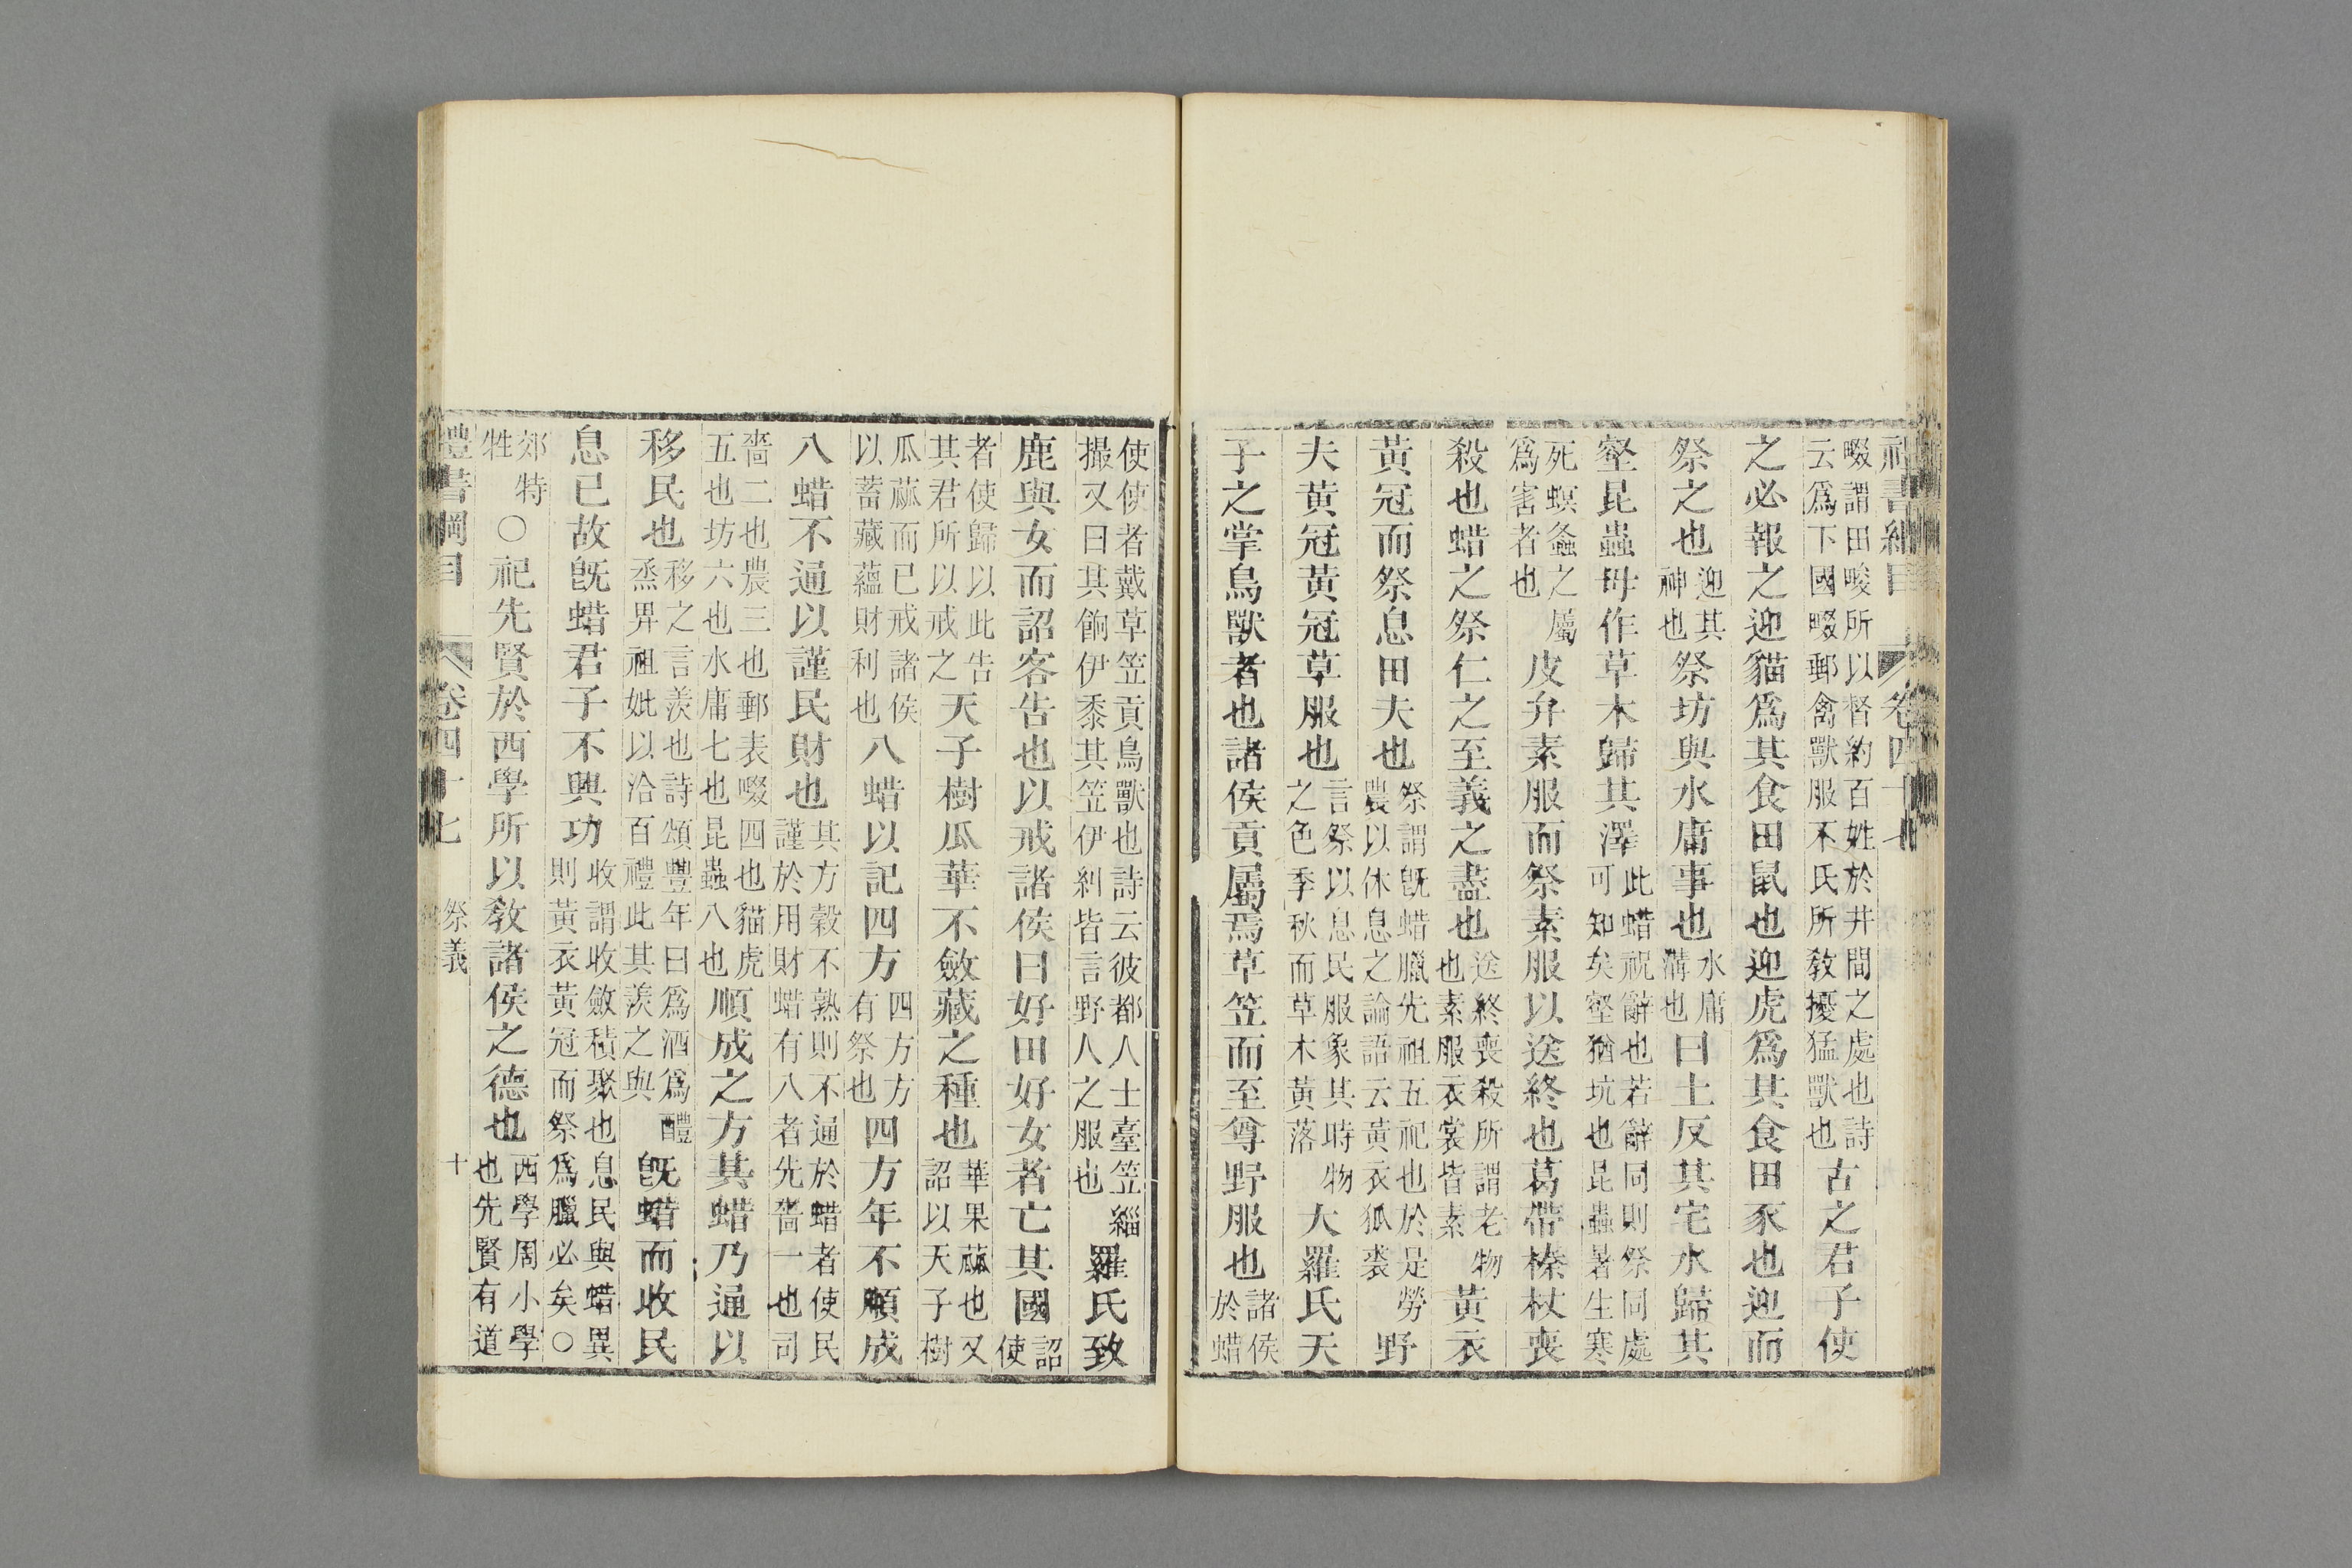 禮書綱目　卷四十七
畷謂田畯所以督約百姓於井間之處也詩云爲下國畷郵禽獸服不氏所敎擾猛獸也古之君子使
之必報之迎貓爲其食田鼠也迎虎爲其食田豕也迎而
祭之也迎其神也祭坊與水庸事也水庸溝也曰土反其宅水歸其
壑昆蟲毋作草木歸其澤此蜡祝辭也若辭同則祭同處可知矣壑猶坑也昆蟲暑生寒
死螟螽之屬爲害者也皮弁素服而祭素服以送終也葛帶榛杖喪
殺也蜡之祭仁之至義之盡也送終喪殺所謂老物也素服衣裳皆素黃衣
黃冠而祭息田夫也祭謂旣蜡臘先祖五祀也於是勞農以休息之論語云黃衣狐裘野
夫黃冠黃冠草服也言祭以息民服象其時物之色季秋而草木黃落大羅氏天
子之掌鳥獸者也諸侯貢屬焉草笠而至尊野服也諸侯於蜡
使使者戴草笠貢鳥獸也詩云彼都人士臺笠緇撮又曰其餉伊黍其笠伊糾皆言野人之服也羅氏致
鹿與女而詔客告也以戒諸侯曰好田好女者亡其國詔使
者使歸以此告其君所以戒之天子樹瓜華不斂藏之種也華果蓏也又詔以天子樹
瓜蓏而已戒諸侯以蓄藏蘊財利也八蜡以記四方四方方有祭也四方年不順成
八蜡不通以謹民財也其方穀不熟則不通於蜡者使民謹於用財蜡有八者先嗇一也司
嗇二也農三也郵表畷四也貓虎五也坊六也水庸七也昆蟲八也順成之方其蜡乃通以
移民也移之言羨也詩頌豐年曰爲酒爲醴烝畀祖妣以洽百禮此其羨之與旣蜡而收民
息已故旣蜡君子不興功收謂收斂積聚也息民與蜡異則黃衣黃冠而祭爲臘必矣○
郊特牲○祀先賢於西學所以敎諸侯之德也西學周小學也先賢有道
禮書綱目　卷四十七　祭義　十